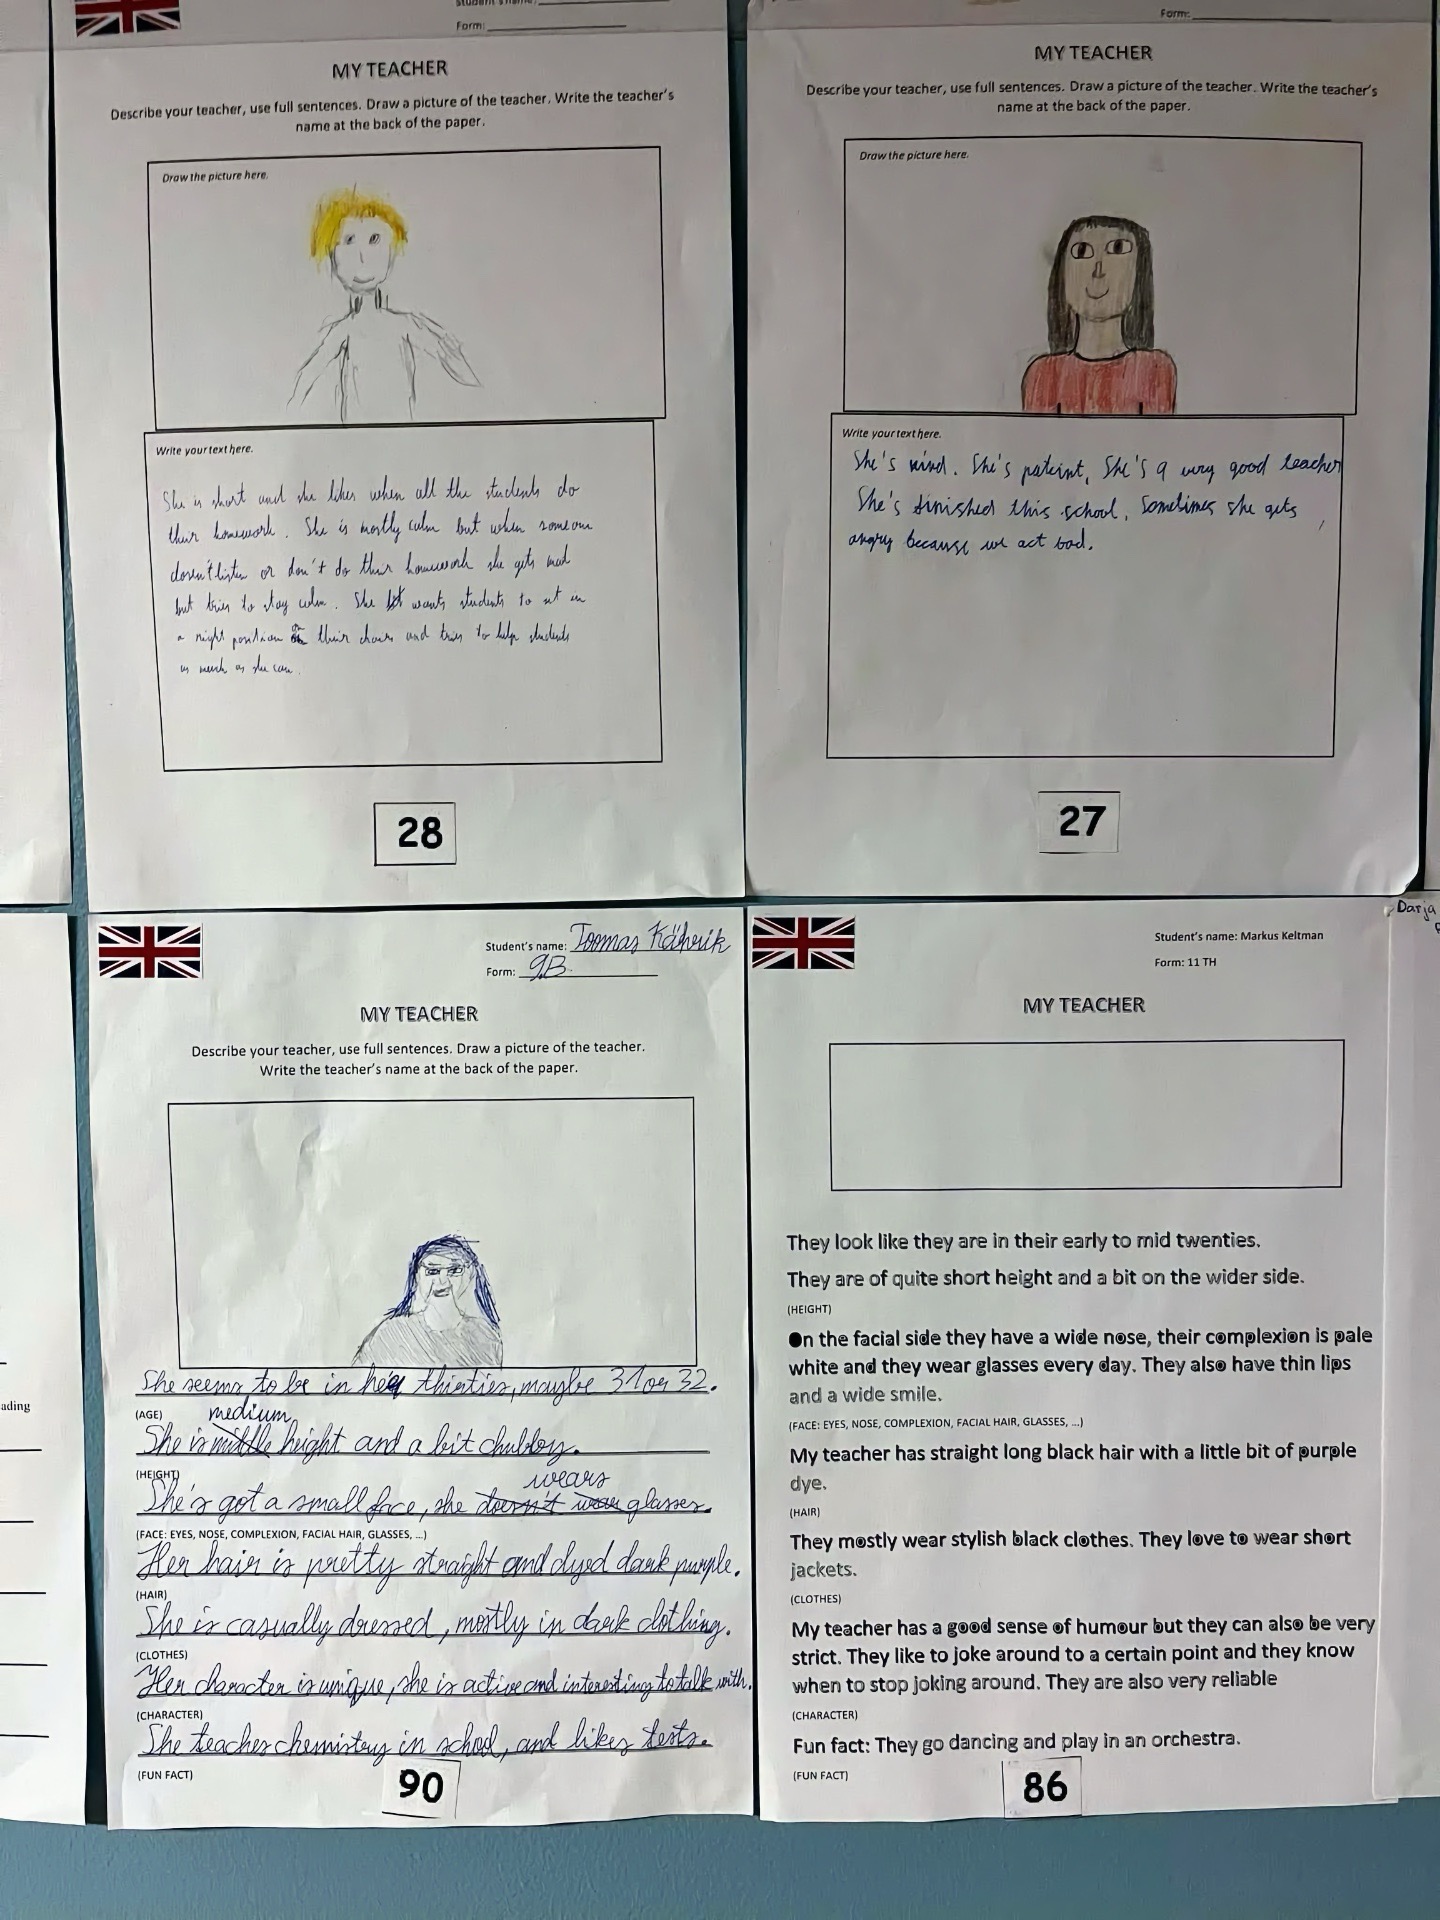 Student's name:
Form:
MY TEACHER
Describe your teacher, use full sentences. Draw a picture of the teacher. Write the teacher's
name at the back of the paper.
Draw the picture here.
Write your text here.
She is short and she likes when all the students do
their homework. She is mostly calm but when someone
doesn't listen or don't do their homework she gets mad
but tries to stay calm. She wants students to sit in
a right position on their chairs and tries to help students
as much as she can.
28
Form:
MY TEACHER
Describe your teacher, use full sentences. Draw a picture of the teacher. Write the teacher's
name at the back of the paper.
Draw the picture here.
Write your text here.
She's kind. She's pateint, She's a very good teacher
She's finished this school, Sometimes she gets
angry because we act bad.
27
Student's name: Toomas Kährik
Form: 9B
MY TEACHER
Describe your teacher, use full sentences. Draw a picture of the teacher.
Write the teacher's name at the back of the paper.
She seems to be in her thirties, maybe 31 or 32.
(AGE)
medium
She is middle height and a bit chubby.
(HEIGHT)
wears
She's got a small face, she doesn't wear glasses.
(FACE: EYES, NOSE, COMPLEXION, FACIAL HAIR, GLASSES, ...)
Her hair is pretty straight and dyed dark purple.
(HAIR)
She is casually dressed, mostly in dark clothing.
(CLOTHES)
Her character is unique, she is active and interesting to talk with.
(CHARACTER)
She teaches chemistry in school, and likes tests.
(FUN FACT)
90
Student's name: Markus Keltman
Form: 11 TH
MY TEACHER
They look like they are in their early to mid twenties.
They are of quite short height and a bit on the wider side.
(HEIGHT)
On the facial side they have a wide nose, their complexion is pale
white and they wear glasses every day. They also have thin lips
and a wide smile.
(FACE: EYES, NOSE, COMPLEXION, FACIAL HAIR, GLASSES, ...)
My teacher has straight long black hair with a little bit of purple
dye.
(HAIR)
They mostly wear stylish black clothes. They love to wear short
jackets.
(CLOTHES)
My teacher has a good sense of humour but they can also be very
strict. They like to joke around to a certain point and they know
when to stop joking around. They are also very reliable
(CHARACTER)
Fun fact: They go dancing and play in an orchestra.
(FUN FACT)
86
Darja
ading